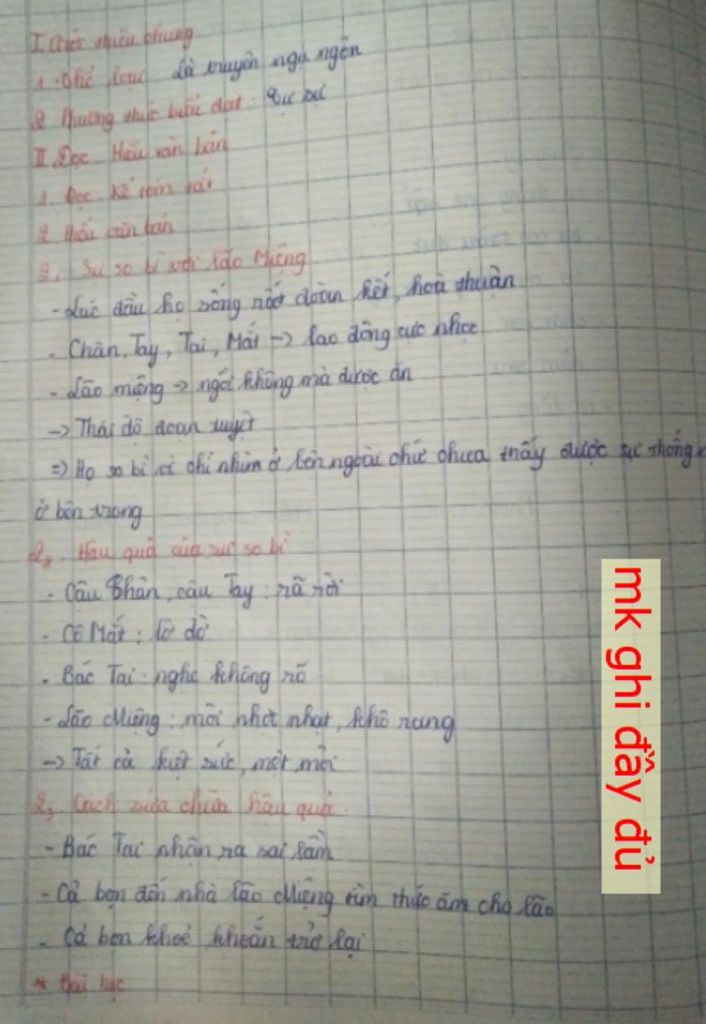 I. Giới thiệu chung
1. Thể loại: Là truyện ngụ ngôn
2. Phương thức biểu đạt: Tự sự
II. Đọc Hiểu văn bản
1. Đọc. Kể tóm tắt
2. Hiểu văn bản
Sự so bì với lão Miệng
- Lúc đầu họ sống rất đoàn kết, hoà thuận
- Chân, Tay, Tai, Mắt -> lao động cực nhọc
- Lão miệng -> ngồi không mà được ăn
-> Thái độ đoạn tuyệt
=> Họ so bì vì chỉ nhìn ở bên ngoài chứ chưa thấy được sự thống
ở bên trong
2, Hậu quả của sự so bì
- Cậu Chân, cậu Tay: rã rời
- Cô Mắt: lờ đờ
- Bác Tai: nghe không rõ
- Lão Miệng: môi nhợt nhạt, khô rang
-> Tất cả kiệt sức, mệt mỏi
2, Cách sửa chữa hậu quả.
- Bác Tai nhận ra sai lầm
- Cả bọn đến nhà lão Miệng tìm thức ăn cho lão
- Cả bọn khoẻ khoắn trở lại
* Bài học
mk ghi đầy đủ